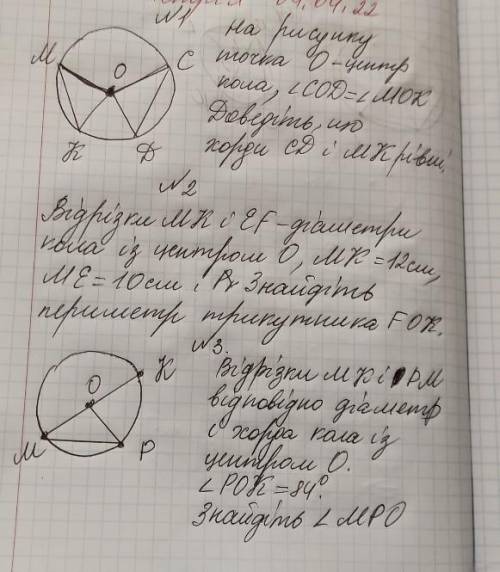 04.04.22
N1
M
O
C
K
D
на рисунку
точка О-центр
кола, ∠COD=∠MOK
Доведіть, що
хорди CD і MK рівні.
N2
Відрізки MK і EF-діаметри
кола із центром O, MK=12см,
ME=10см. Знайдіть
периметр трикутника FOK.
N3.
O
K
M
P
Відрізки MK і PM
відповідно діаметр
і хорда кола із
центром O.
∠POK=84°.
Знайдіть ∠MPO